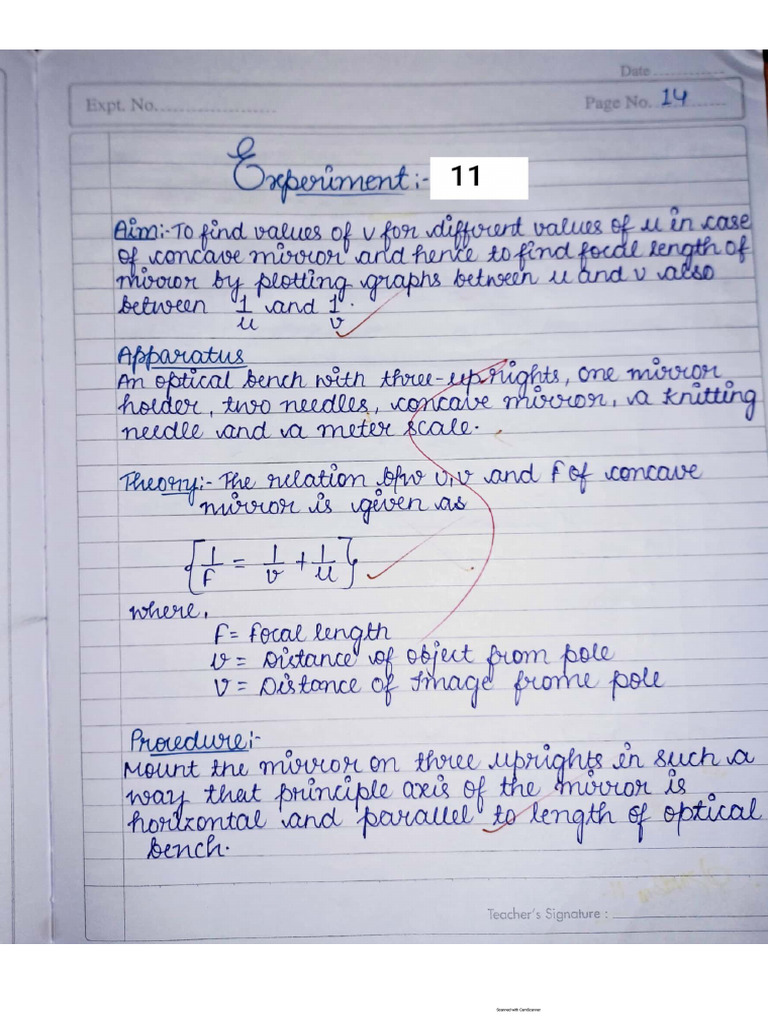 Date ............
Expt. No. ....................
Page No. 14
Experiment:- 11
Aim:- To find values of v for different values of u in case
of concave mirror and hence to find focal length of
mirror by plotting graphs between u and v also
between 1/u and 1/v.
Apparatus
An optical bench with three-uprights, one mirror
holder, two needles, concave mirror, a knitting
needle and a meter scale.
Theory:- The relation b/w u, v and f of concave
mirror is given as
{1/f = 1/v + 1/u}
where,
f = focal length
u = Distance of object from pole
v = Distance of Image frome pole
Procedure:-
Mount the mirror on three uprights in such a
way that principle axis of the mirror is
horizontal and parallel to length of optical
bench.
Teacher's Signature :
Scanned with CamScanner